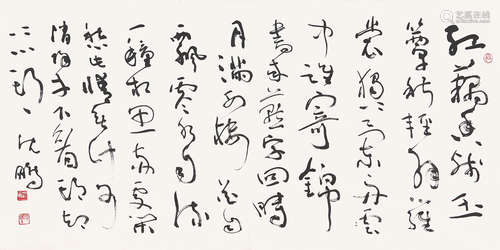 红藕香残玉
簟秋轻解罗
裳独上兰舟云
中谁寄锦
书来雁字回时
月满西楼花自
飘零水自流
一种相思两处闲
愁此情无计可
消除才下眉头却
上心头 沈鹏